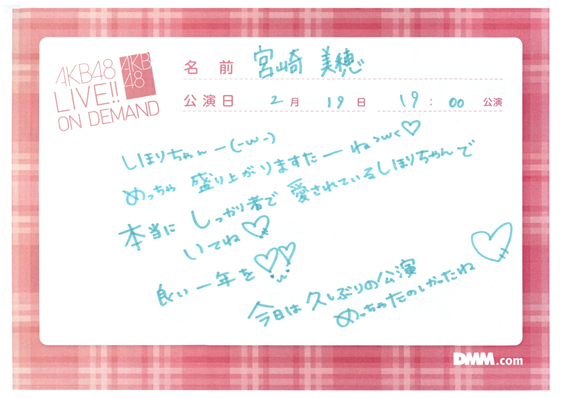 AKB48
LIVE!!
ON DEMAND
AKB
48
名 前 宮崎 美穂
公演日 2月 19日 19:00 公演
しほりちゃんー(-w-)
めっちゃ 盛り上がりますたーね>w<♡
本当に しっかり者で 愛されているしほりちゃんで
いてね♡
良い一年を♡♡
今日は久しぶりの公演
めっちゃたのしかったね♡
DMM.com